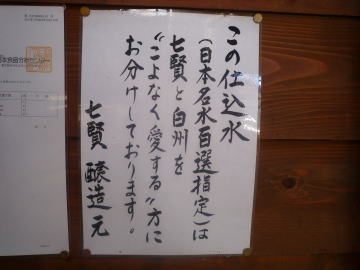 この仕込水
(日本名水百選指定)は
七賢と白州を
“こよなく愛する”方に
お分けしております。
七賢 醸造元